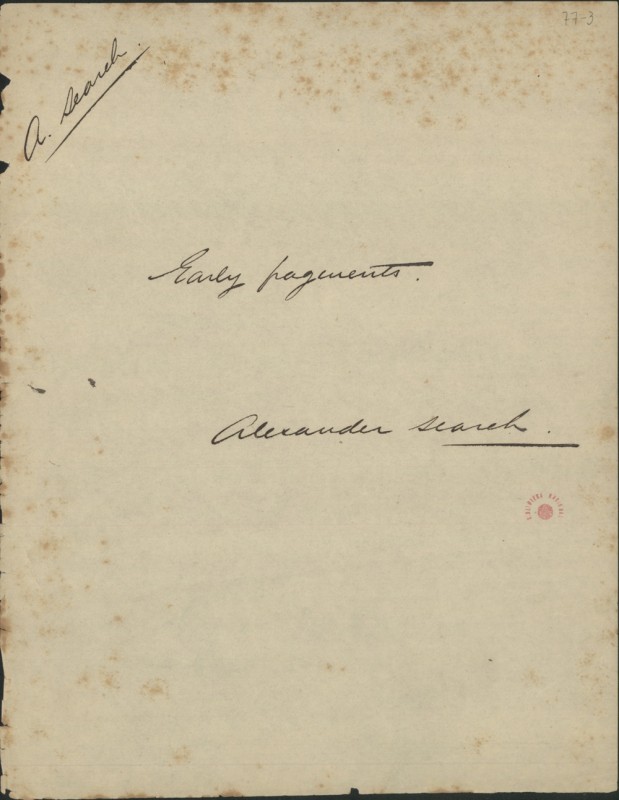 77-3
A. Search.
Early fragments.
Alexander Search.
BIBLIOTECA NACIONAL